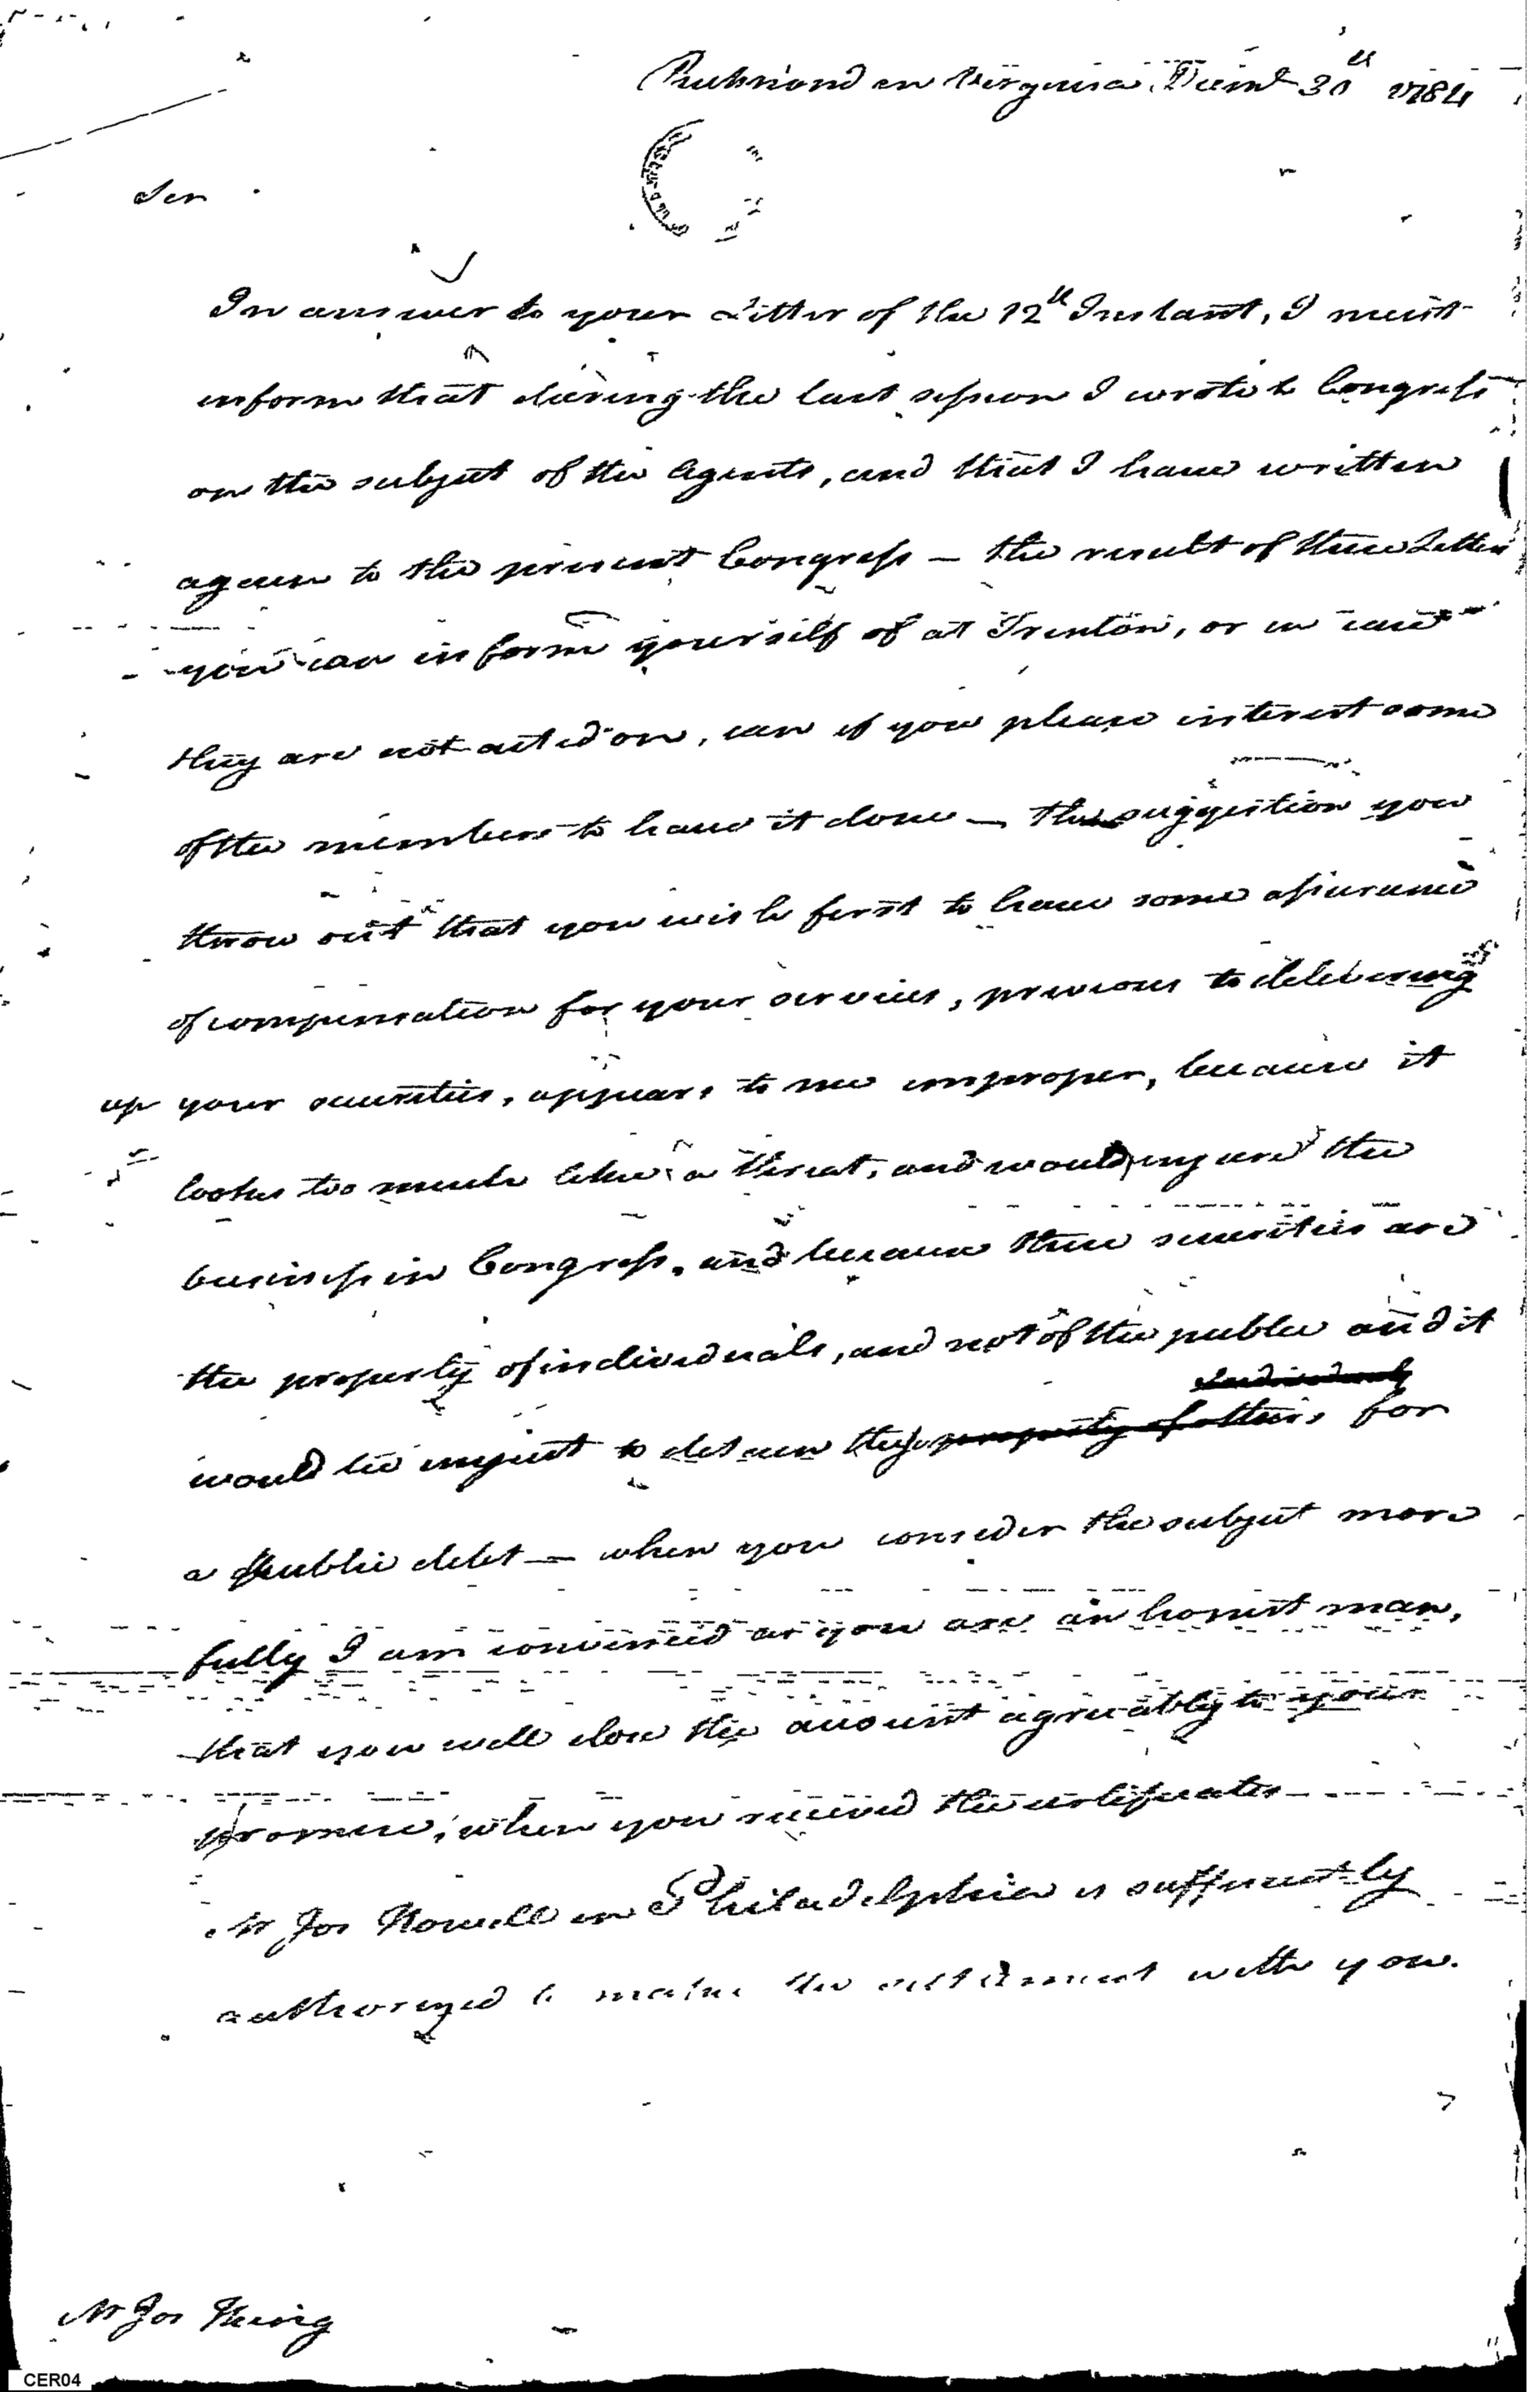 Richmond in Virginia, Decemr 30th 1784
Sir
In answer to your Letter of the 12th Instant, I must
inform that during the last session I wrote to Congress
on the subject of the Agents, and that I have written
again to the present Congress — the result of these Letters
you can inform yourself of at Trenton, or in case
they are not acted on, can if you please interest some
of the members to have it done — the suggestion you
throw out that you wish first to have some assurance
of compensation for your services, previous to delivering
up your securities, appears to me improper, because it
looks too much like a threat, and would injure the
business in Congress, and because these securities are
the property of individuals, and not of the public and it
would be unjust to detain the property of others for
a public debt — when you consider the subject more
fully I am convinced as you are an honest man,
that you will close the account agreeably to your
promise, when you received the certificates
Mr Jos Howell in Philadelphia is sufficiently
authorized to make the settlement with you.
Mr Jos King
CER04